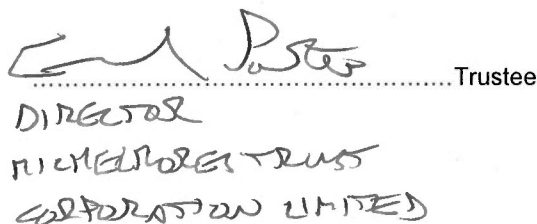 ........................................Trustee
DIRECTOR
MICHELMORES TRUST
CORPORATION LIMITED